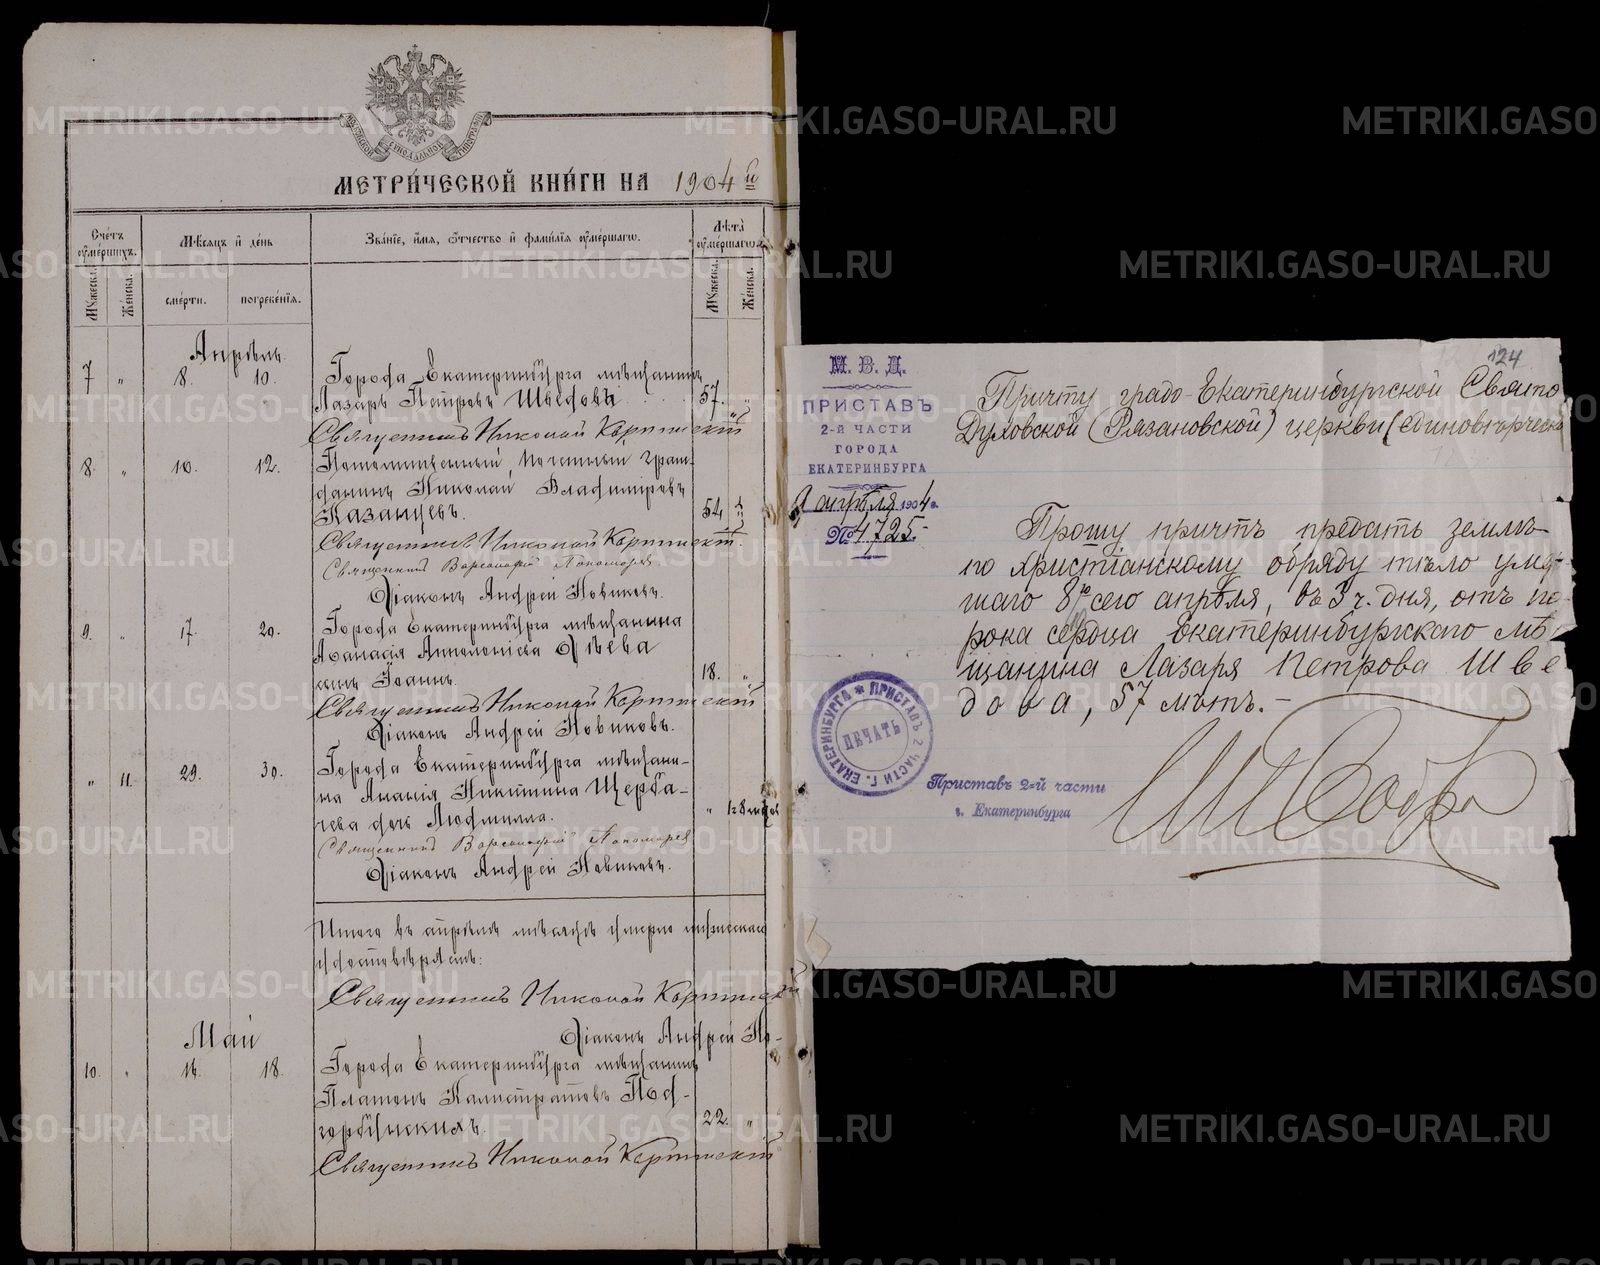 МЕТРИ́ЧЕСКОЙ КНИ́ГИ НА 1904й
Счетъ ѹмершихъ.
Мѣсяцъ и день
Званіе, имя, отчество и фамилія ѹмершагѡ.
Лѣта ѹмершагѡ.
Мужеска.
Женска.
смерти.
погребенія.
Мужеска.
Женска.
Апрѣль.
7 " 8. 10. Города Екатеринбурга мѣщанинъ
Лазарь Петровъ Шведовъ 57. "
Священникъ Николай
8. " 10. 12. Потомственный почетный граж-
данинъ Николай Владиміровъ
Казанцевъ. 54 "
Священникъ Николай
Священникъ Варсонофій Пономаревъ
Діаконъ Андрей Новиковъ.
9. " 17. 20. Города Екатеринбурга мѣщанина
Аѳанасія Аполлоніева Дѣева
сынъ Іоаннъ. 18. "
Священникъ Николай
Діаконъ Андрей Новиковъ.
" 11. 29. 30. Города Екатеринбурга мѣщани-
на Ананія Никитина Щерба-
кова дочь Людмилла. "
Священникъ Варсонофій Пономарев
Діаконъ Андрей Новиковъ.
Итого въ апрѣлѣ мѣсяцѣ умерло мужескаго
удостовѣряемъ:
Священникъ Николай
Діаконъ Андрей Но-
Май
10. " 16. 18. Города Екатеринбурга мѣщанинъ
Платонъ Калистратовъ Под-
горбунскихъ. 22. "
Священникъ Николай
124
М. В. Д.
ПРИСТАВЪ
2-й ЧАСТИ
ГОРОДА
ЕКАТЕРИНБУРГА
9 апрѣля 1904 г.
№ 1725.
Причту градо-Екатеринбургской Свято
Духовской (Рязановской) церкви (единовѣрческ
Прошу причтъ предать землѣ
по христіанскому обряду тѣло умер-
шаго 8го сего апрѣля, въ 3 ч. дня, отъ по-
рока сердца Екатеринбургскаго мѣ
щанина Лазаря Петрова Шве
дова, 57 лѣтъ.-
ПРИСТАВЪ 2 ЧАСТИ Г. ЕКАТЕРИНБУРГА
ПЕЧАТЬ
Приставъ 2-й части
г. Екатеринбурга
METRIKI.GASO-URAL.RU